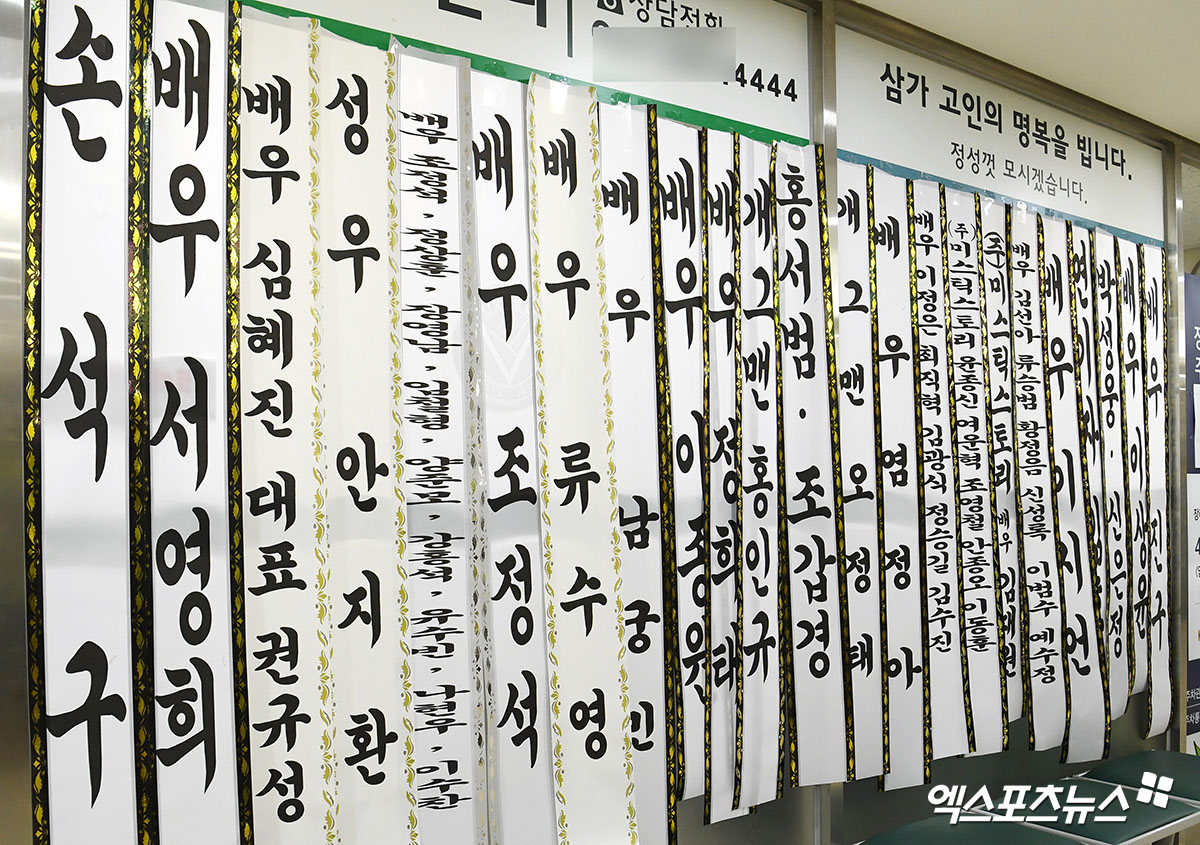 상담전화
4444
삼가 고인의 명복을 빕니다.
정성껏 모시겠습니다.
손석구
배우 서영희
배우 심혜진 대표 권규성
성우 안지환
배우 조정석
배우 류수영
배우 남궁민
배우 이종원
배우 정희태
개그맨 홍인규
홍서범·조갑경
개그맨 오정태
배우 염정아
배우 이정은 최직혁 김광식 정승길 김수진
(주)미스틱스토리 윤종신 여운혁 조영철 안종오 이동훈
(주)미스틱스토리 배우 김태원
배우 김선아 류승범 황정음 신성록 이범수 예수정
배우 이시언
박성웅·신은정
배우 이상윤
배우 진구
엑스포츠뉴스